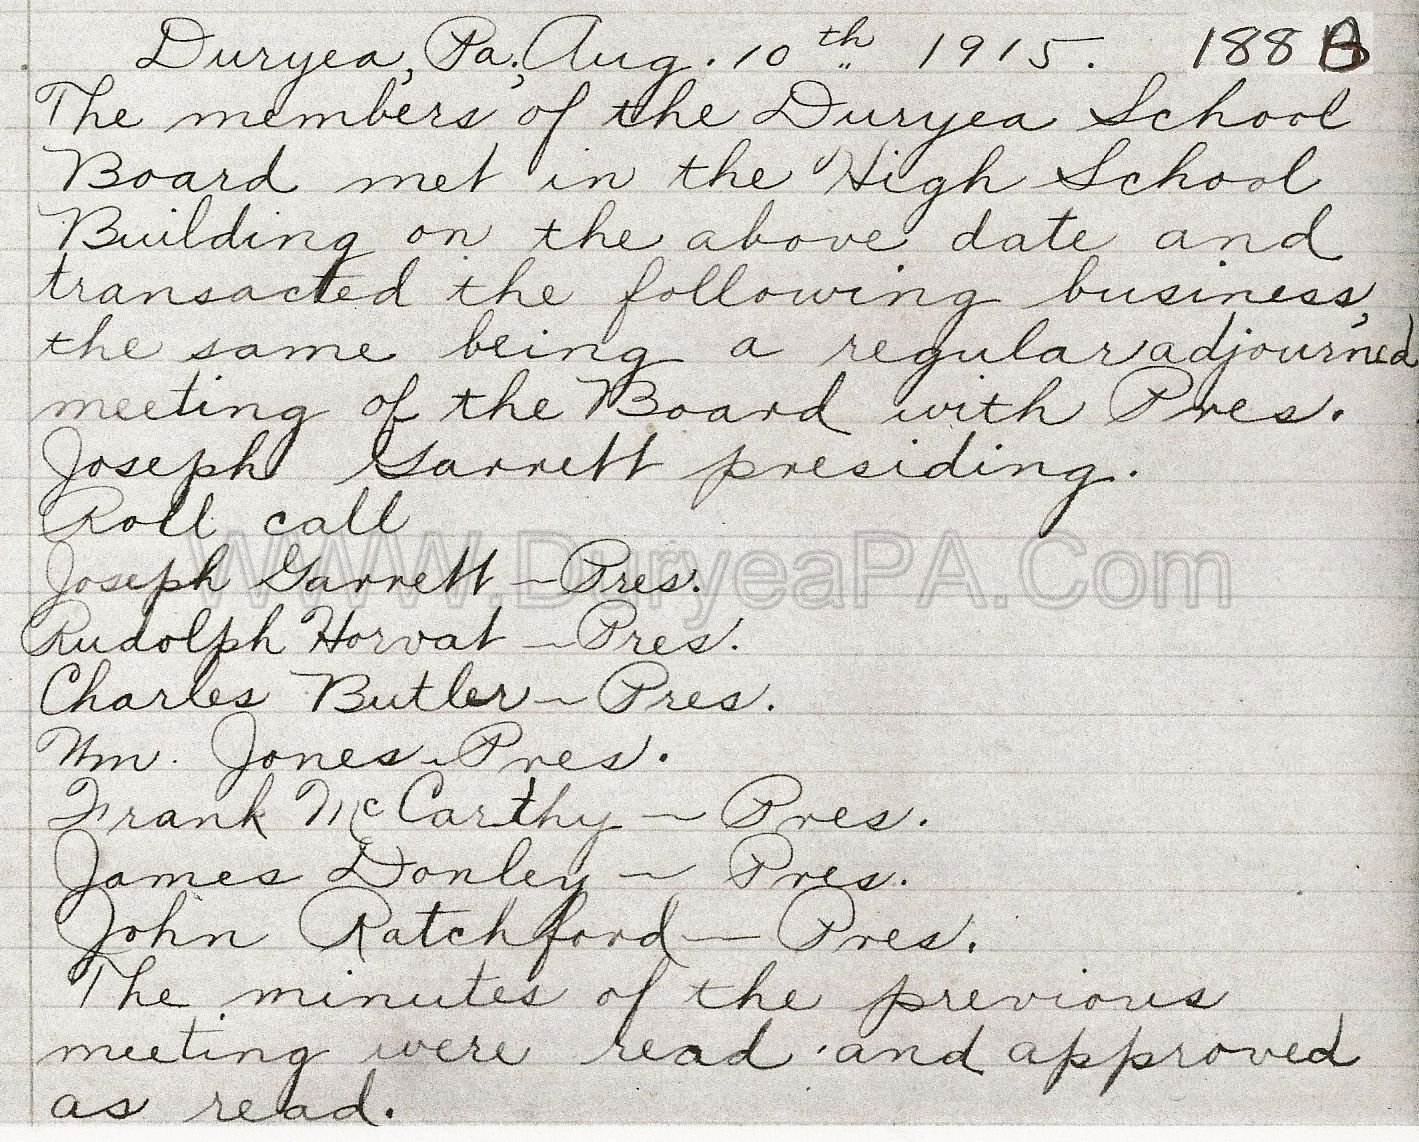 Duryea, Pa., Aug. 10th 1915. 188 B
The members of the Duryea School
Board met in the High School
Building on the above date and
transacted the following business,
the same being a regular adjourned
meeting of the Board with Pres.
Joseph Garrett presiding.
Roll call
WWW.DuryeaPA.Com
Joseph Garrett – Pres.
Rudolph Horvat – Pres.
Charles Butler – Pres.
Wm. Jones – Pres.
Frank McCarthy – Pres.
James Donley – Pres.
John Ratchford – Pres.
The minutes of the previous
meeting were read and approved
as read.